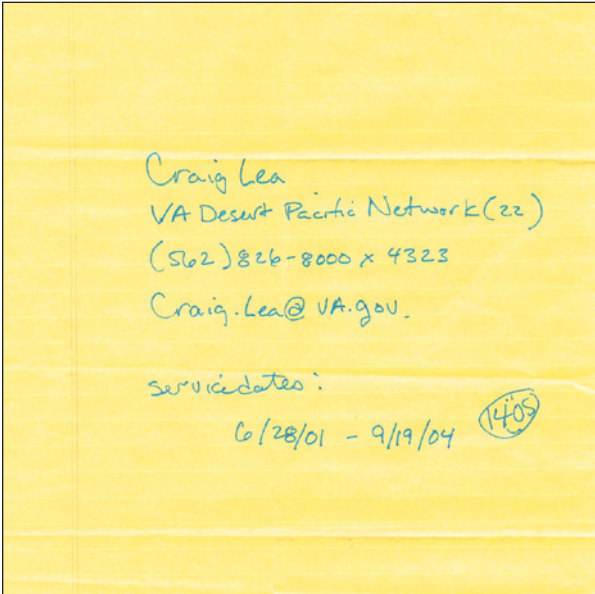 Craig Lea
VA Desert Pacific Network (22)
(562) 826-8000 x 4323
Craig.Lea@VA.gov.
servicedates:
6/28/01 - 9/19/04
1405